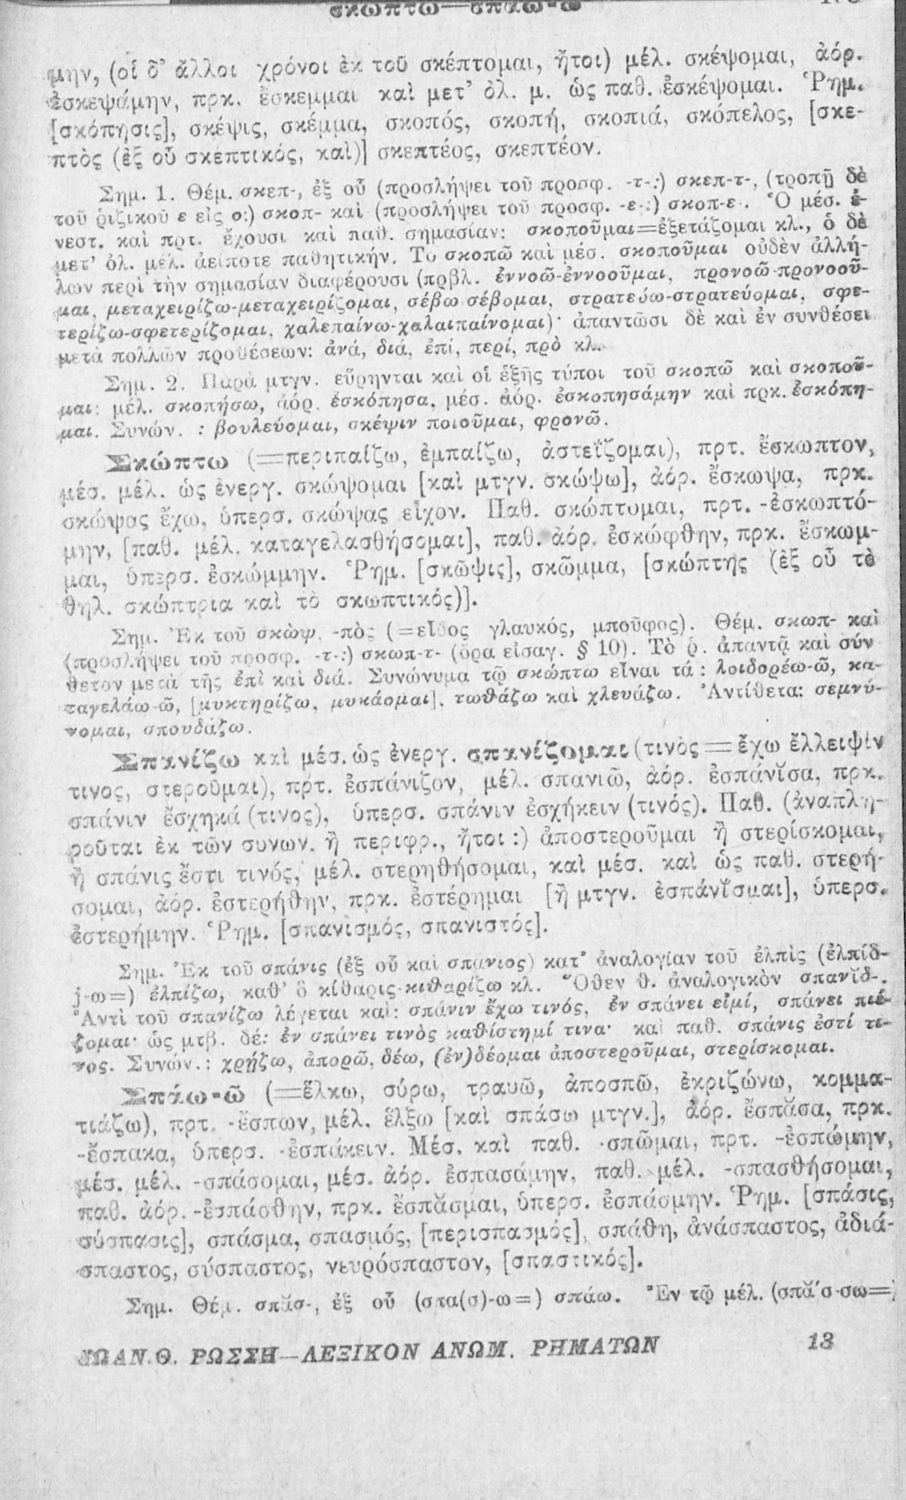 σκώπτω—σπάω-ῶ
μην, (οἱ δ' ἄλλοι χρόνοι ἐκ τοῦ σκέπτομαι, ἤτοι) μέλ. σκέψομαι, ἀόρ.
ἐσκεψάμην, πρκ. ἔσκεμμαι καὶ μετ' ὀλ. μ. ὡς παθ. ἐσκέψομαι. Ῥημ.
[σκόπησις], σκέψις, σκέμμα, σκοπός, σκοπή, σκοπιά, σκόπελος, [σκε-
πτὸς (ἐξ οὗ σκεπτικός, καὶ)] σκεπτέος, σκεπτέον.
Σημ. 1. Θέμ. σκεπ-, ἐξ οὗ (προσλήψει τοῦ προσφ. -τ-:) σκεπ-τ-, (τροπῇ δὲ
τοῦ ῥιζικοῦ ε εἰς ο:) σκοπ- καὶ (προσλήψει τοῦ προσφ. -ε-:) σκοπ-ε-. Ὁ μέσ. ἐ-
νεστ. καὶ πρτ. ἔχουσι καὶ παθ. σημασίαν: σκοποῦμαι=ἐξετάζομαι κλ., ὁ δὲ
μετ' ὀλ. μέλ. ἀείποτε παθητικήν. Τὸ σκοπῶ καὶ μέσ. σκοποῦμαι οὐδὲν ἀλλή-
λων περὶ τὴν σημασίαν διαφέρουσι (πρβλ. ἐννοῶ-ἐννοοῦμαι, προνοῶ-προνοοῦ-
μαι, μεταχειρίζω-μεταχειρίζομαι, σέβω σέβομαι, στρατεύω-στρατεύομαι, σφε-
τερίζω-σφετερίζομαι, χαλεπαίνω-χαλαιπαίνομαι)· ἀπαντῶσι δὲ καὶ ἐν συνθέσει
μετὰ πολλῶν προθέσεων: ἀνά, διά, ἐπί, περί, πρὸ κλ.
Σημ. 2. Παρὰ μτγν. εὕρηνται καὶ οἱ ἑξῆς τύποι τοῦ σκοπῶ καὶ σκοποῦ-
μαι: μέλ. σκοπήσω, ἀόρ. ἐσκόπησα, μέσ. ἀόρ. ἐσκοπησάμην καὶ πρκ. ἐσκόπη-
μαι. Συνών. : βουλεύομαι, σκέψιν ποιοῦμαι, φρονῶ.
Σκώπτω (=περιπαίζω, ἐμπαίζω, ἀστεΐζομαι), πρτ. ἔσκωπτον,
μέσ. μέλ. ὡς ἐνεργ. σκώψομαι [καὶ μτγν. σκώψω], ἀόρ. ἔσκωψα, πρκ.
σκώψας ἔχω, ὑπερσ. σκώψας εἶχον. Παθ. σκώπτομαι, πρτ. -ἐσκωπτό-
μην, [παθ. μέλ. καταγελασθήσομαι], παθ. ἀόρ. ἐσκώφθην, πρκ. ἔσκωμ-
μαι, ὑπερσ. ἐσκώμμην. Ῥημ. [σκῶψις], σκῶμμα, [σκώπτης (ἐξ οὗ τὸ
θηλ. σκώπτρια καὶ τὸ σκωπτικός)].
Σημ. Ἐκ τοῦ σκὼψ, -πὸς (=εἶδος γλαυκός, μπούφος). Θέμ. σκωπ- καὶ
(προσλήψει τοῦ προσφ. -τ-:) σκωπ-τ- (ὅρα εἰσαγ. § 10). Τὸ ῥ. ἀπαντᾷ καὶ σύν
θετον μετὰ τῆς ἐπὶ καὶ διά. Συνώνυμα τῷ σκώπτω εἶναι τά: λοιδορέω-ῶ, κα-
ταγελάω-ῶ, [μυκτηρίζω, μυκάομαι], τωθάζω καὶ χλευάζω. Ἀντίθετα: σεμνύ-
νομαι, σπουδάζω.
Σπανίζω καὶ μέσ. ὡς ἐνεργ. σπανίζομαι (τινὸς=ἔχω ἔλλειψίν
τινος, στεροῦμαι), πρτ. ἐσπάνιζον, μέλ. σπανιῶ, ἀόρ. ἐσπάνῐσα, πρκ.
σπάνιν ἔσχηκά (τινος), ὑπερσ. σπάνιν ἐσχήκειν (τινός). Παθ. (ἀναπλη-
ροῦται ἐκ τῶν συνων. ἢ περιφρ., ἤτοι :) ἀποστεροῦμαι ἢ στερίσκομαι,
ἢ σπάνις ἔστι τινός, μέλ. στερηθήσομαι, καὶ μέσ. καὶ ὡς παθ. στερή-
σομαι, ἀόρ. ἐστερήθην, πρκ. ἐστέρημαι [ἢ μτγν. ἐσπάνῐσμαι], ὑπερσ.
ἐστερήμην. Ῥημ. [σπανισμός, σπανιστός].
Σημ. Ἐκ τοῦ σπάνις (ἐξ οὗ καὶ σπάνιος) κατ' ἀναλογίαν τοῦ ἐλπὶς (ἐλπίδ-
j-ω=) ἐλπίζω, καθ' ὃ κίθαρις-κιθαρίζω κλ. Ὅθεν θ. ἀναλογικὸν σπανῐδ-.
Ἀντὶ τοῦ σπανίζω λέγεται καὶ: σπάνιν ἔχω τινός, ἐν σπάνει εἰμί, σπάνει πιέ-
ζομαι· ὡς μτβ. δέ: ἐν σπάνει τινὸς καθίστημί τινα· καὶ παθ. σπάνις ἐστί τι-
νος. Συνών.: χρῄζω, ἀπορῶ, δέω, (ἐν)δέομαι ἀποστεροῦμαι, στερίσκομαι.
Σπάω-ῶ (=ἕλκω, σύρω, τραυῶ, ἀποσπῶ, ἐκριζώνω, κομμα-
τιάζω), πρτ. -ἔσπων, μέλ. ἕλξω [καὶ σπάσω μτγν.], ἀόρ. ἔσπᾰσα, πρκ.
-ἔσπακα, ὑπερσ. -ἐσπάκειν. Μέσ. καὶ παθ. -σπῶμαι, πρτ. -ἐσπώμην,
μέσ. μέλ. -σπάσομαι, μέσ. ἀόρ. ἐσπασάμην, παθ. μέλ. -σπασθήσομαι,
παθ. ἀόρ. -ἐσπάσθην, πρκ. ἔσπᾰσμαι, ὑπερσ. ἐσπάσμην. Ῥημ. [σπάσις,
σύσπασις], σπάσμα, σπασμός, [περισπασμός], σπάθη, ἀνάσπαστος, ἀδιά-
σπαστος, σύσπαστος, νευρόσπαστον, [σπαστικός].
Σημ. Θέμ. σπᾰσ-, ἐξ οὗ (σπα(σ)-ω=) σπάω. Ἐν τῷ μέλ. (σπᾰ́σ-σω=)
ΙΩΑΝ. Θ. ΡΩΣΣΗ—ΛΕΞΙΚΟΝ ΑΝΩΜ. ΡΗΜΑΤΩΝ 13